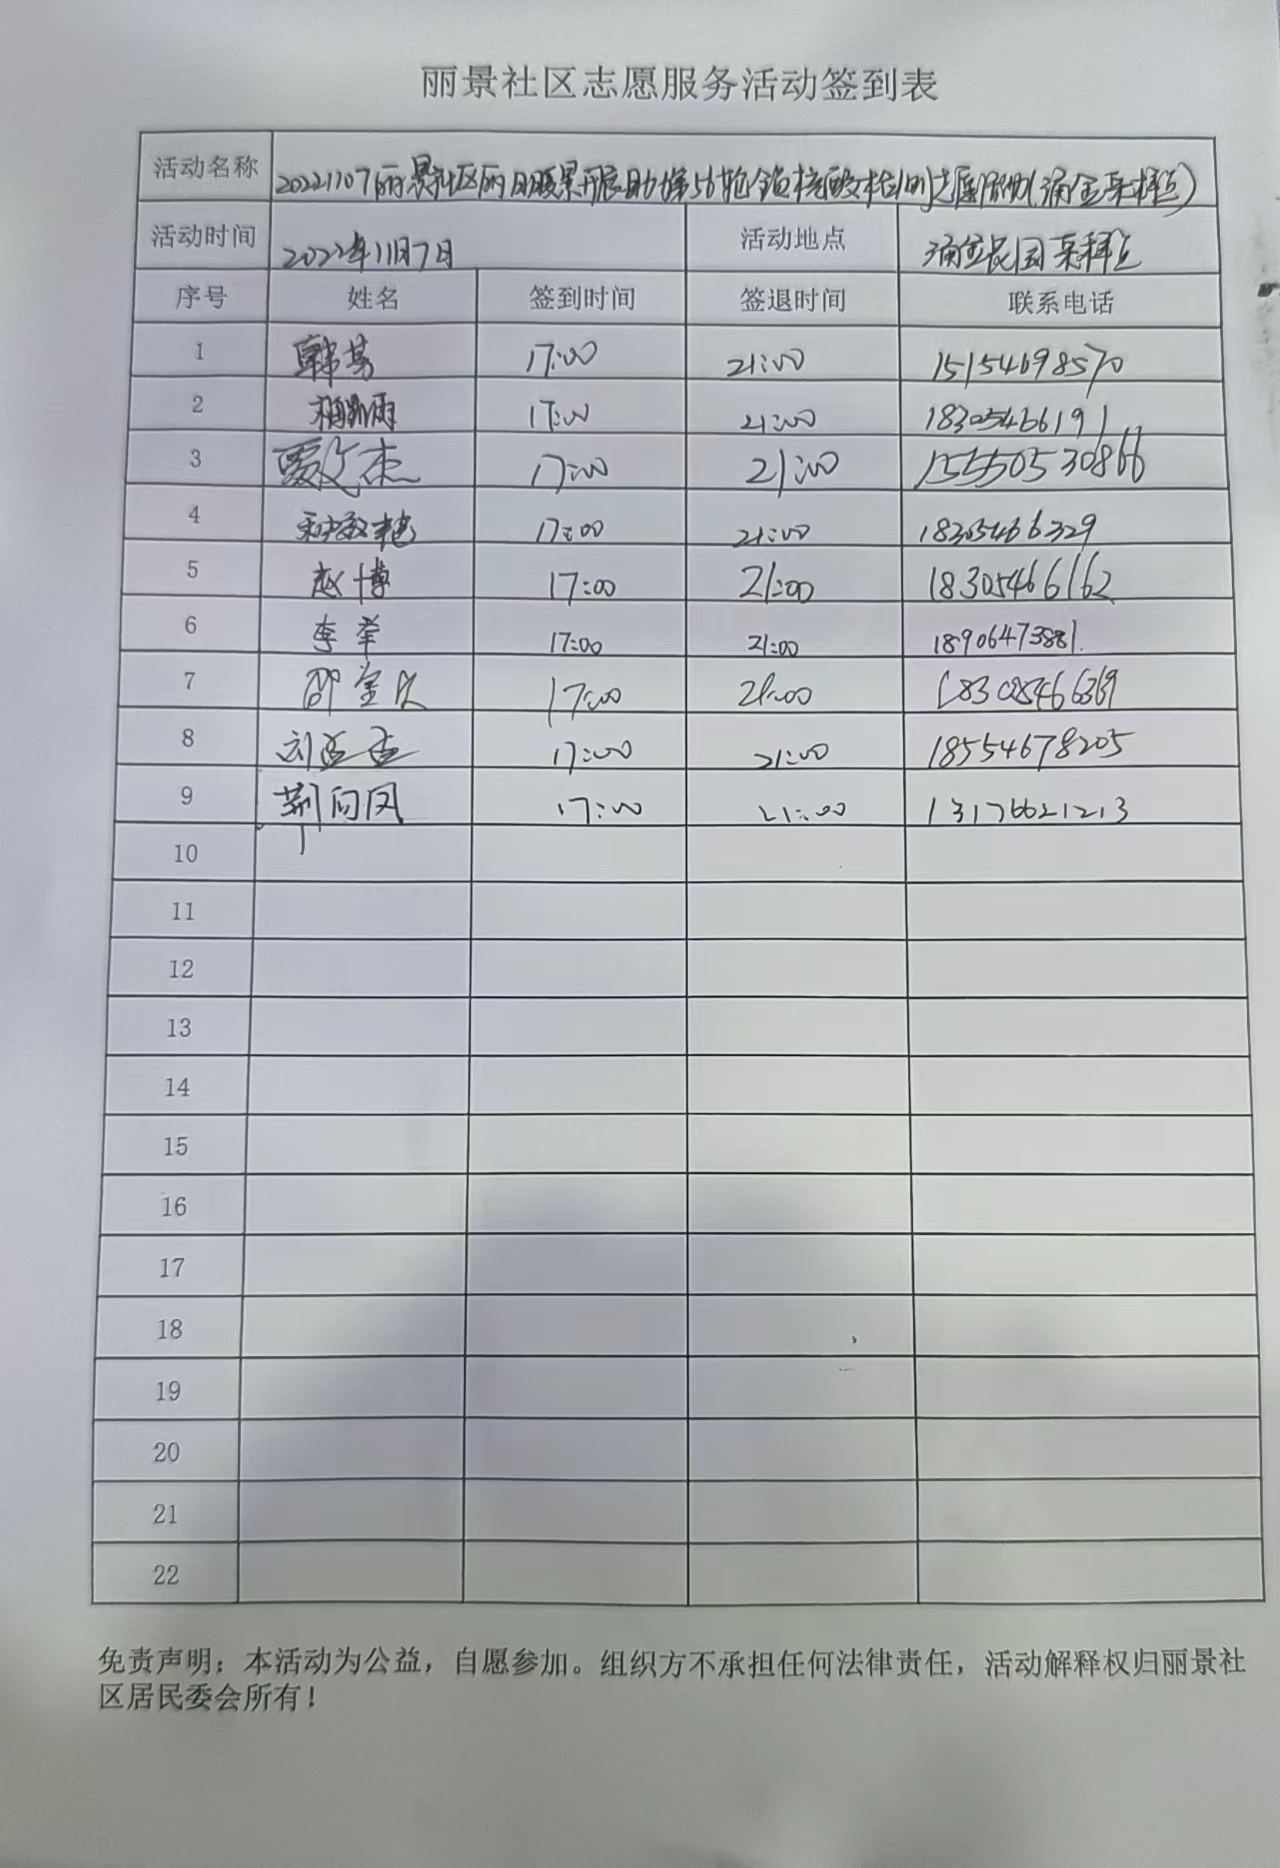 丽景社区志愿服务活动签到表
活动名称 20221107丽景社区丽日暖景开展助力第56轮全员核酸检测志愿服务(涌金采样点)
活动时间 2022年11月7日 活动地点 涌金花园采样点
序号 姓名 签到时间 签退时间 联系电话
1 韩芳 17:00 21:00 15154698570
2 17:00 21:00 18305466191
3 贾文杰 17:00 21:00 15550530866
4 17:00 21:00 18305466329
5 赵博 17:00 21:00 18305466162
6 李举 17:00 21:00 18906473881
7 17:00 21:00 18305466369
8 刘孟孟 17:00 21:00 18554678205
9 荆向凤 17:00 21:00 13176621213
10
11
12
13
14
15
16
17
18
19
20
21
22
免责声明：本活动为公益，自愿参加。组织方不承担任何法律责任，活动解释权归丽景社
区居民委会所有！